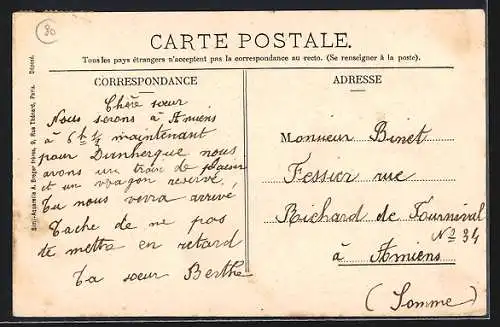 80
CARTE POSTALE.
Tous les pays étrangers n'acceptent pas la correspondance au recto. (Se renseigner à la poste).
CORRESPONDANCE
Chère sœur
Nous serons à Amiens
à 6 h ½ maintenant
pour Dunkerque nous
avons un train de plaisir
et un vagon reservé,
Tu nous verra arrivé,
Tache de ne pas
te mettre en retard
Ta sœur Berthe
ADRESSE
Monsieur Binet
Fessier rue
Richard de Fournival
Nº 34
à Amiens
(Somme)
Simi-Aquarelle A. Breger frères, 9, Rue Thénard, Paris. Déposé.